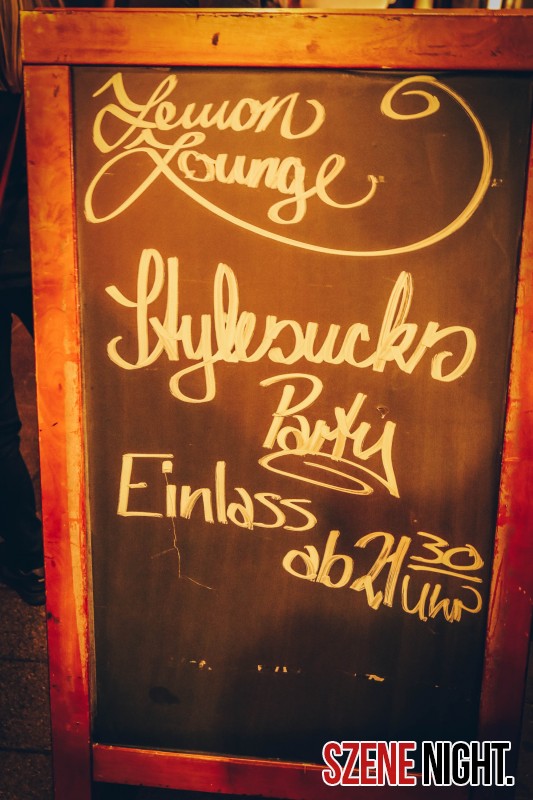 Lemon
Lounge
Stylesucks
Party
Einlass
ab 21 30
Uhr
SZENE NIGHT.